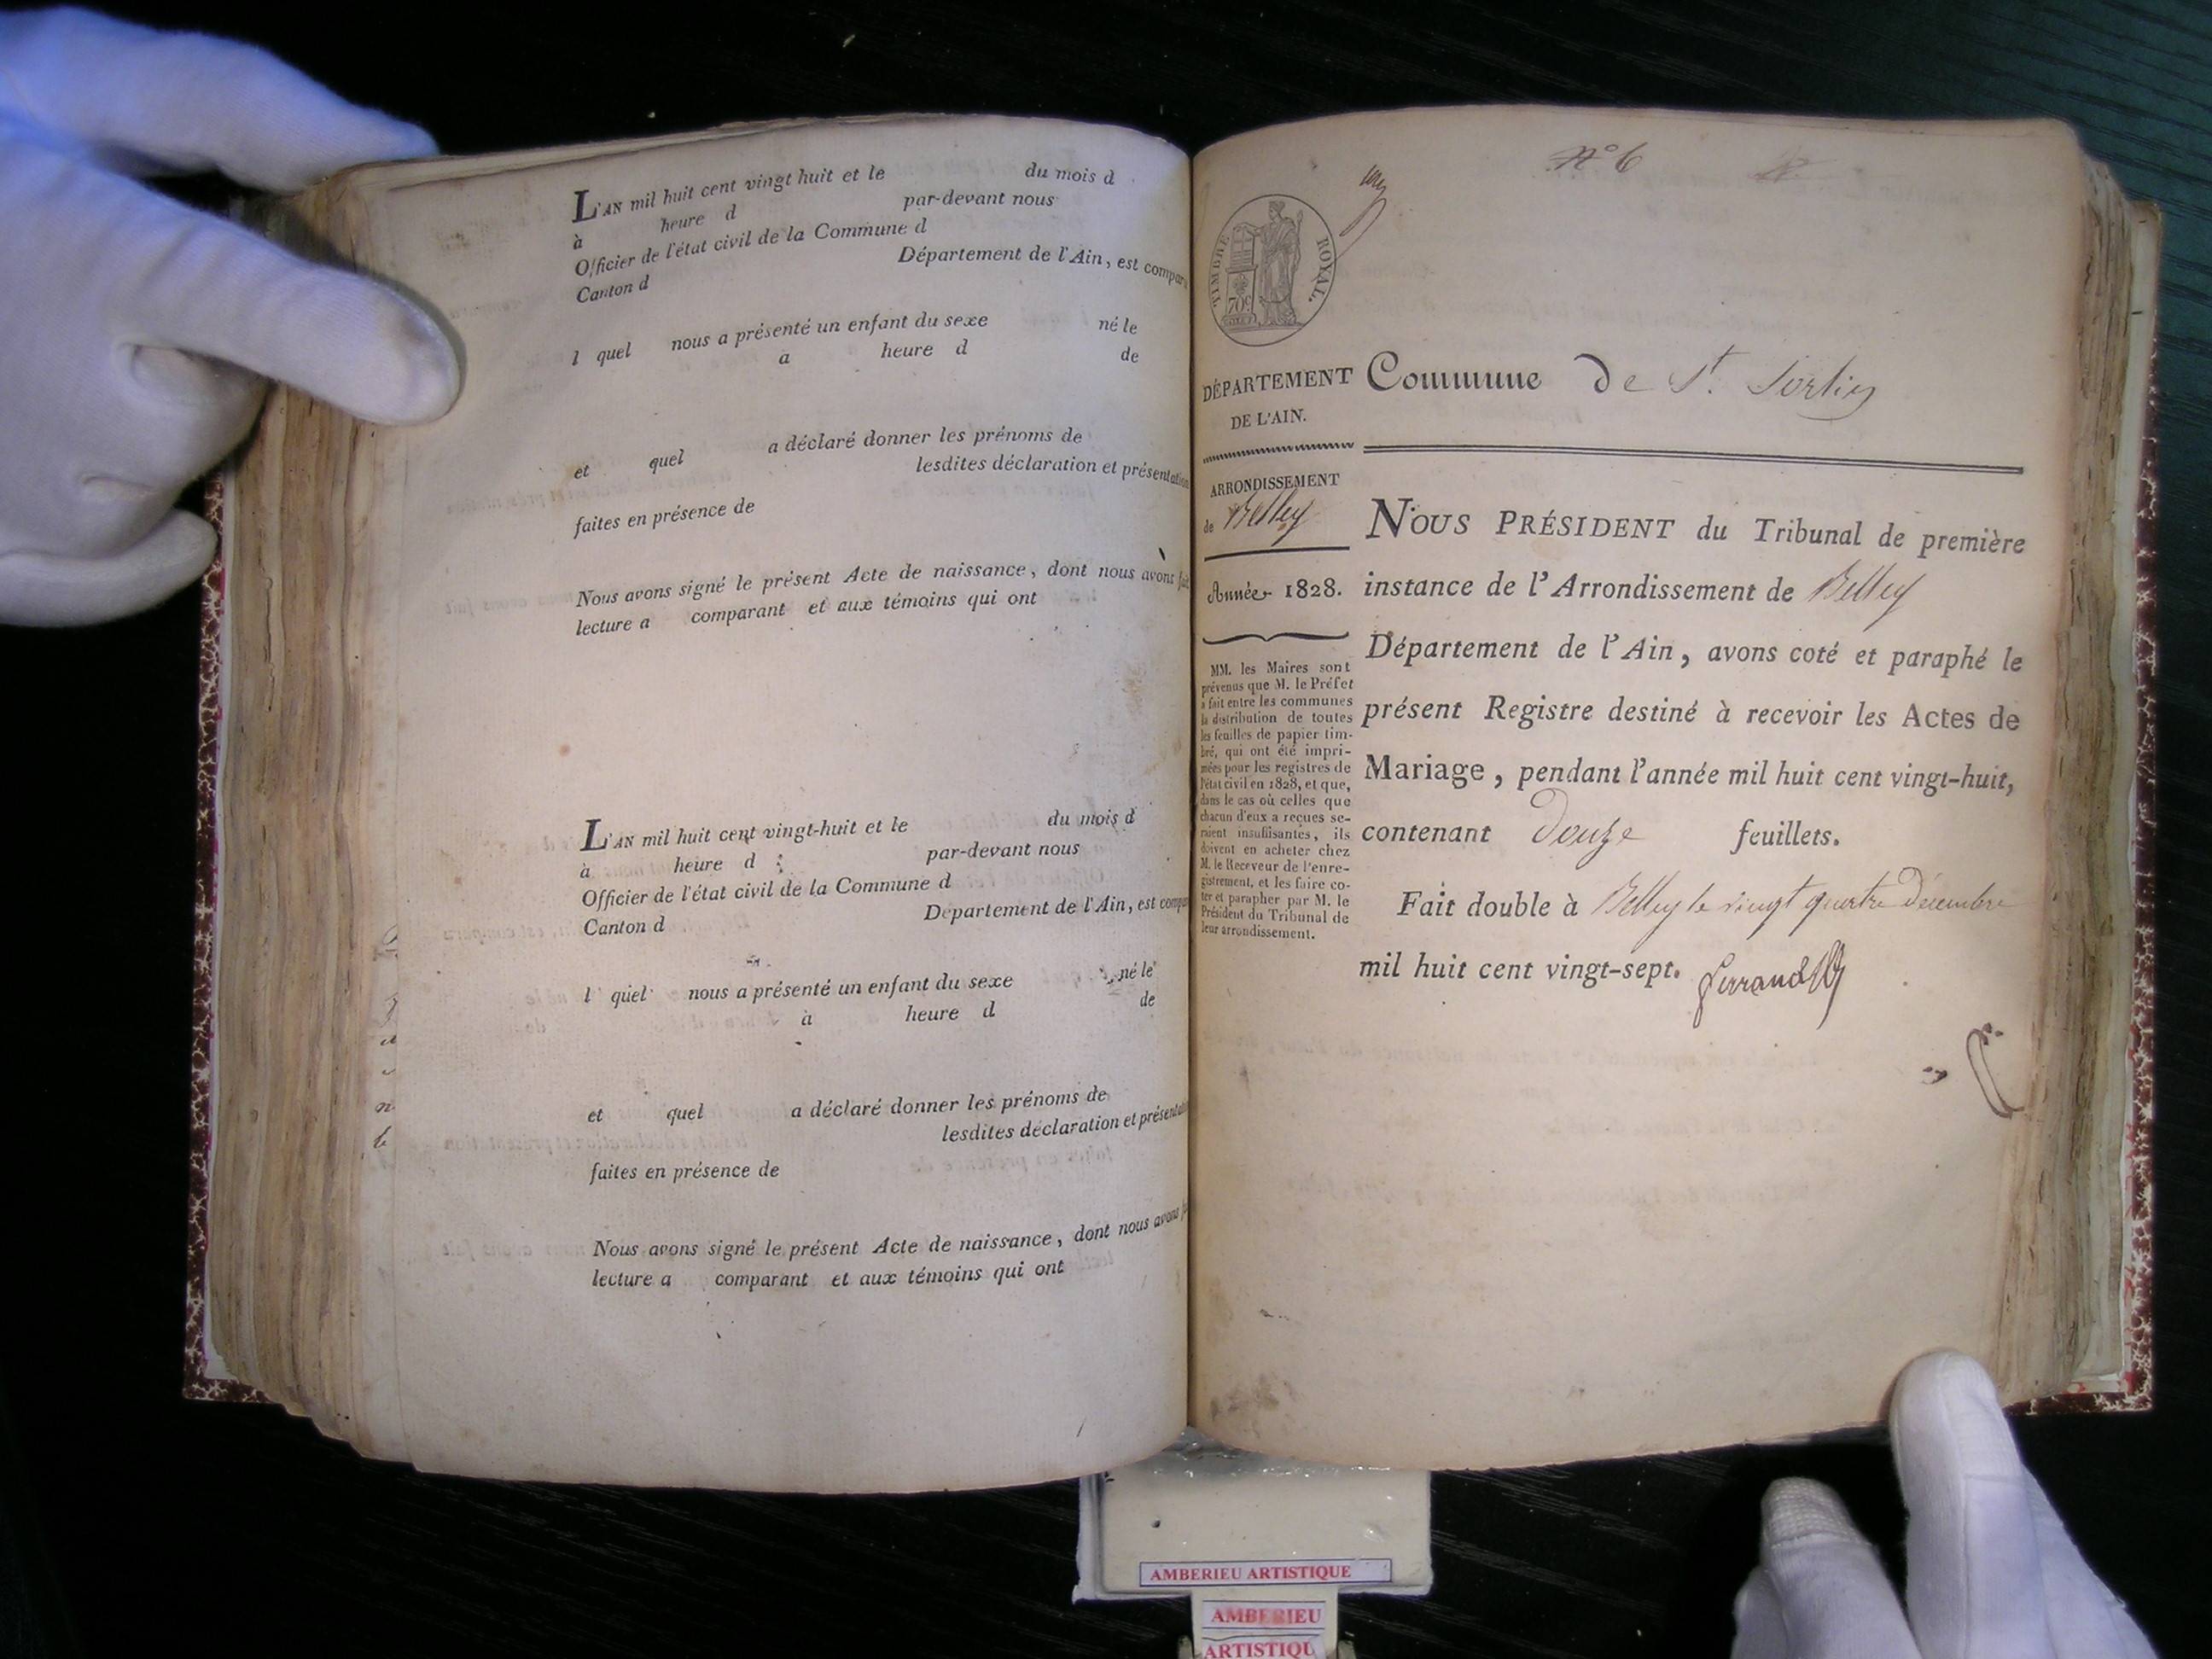 L'AN mil huit cent vingt huit et le du mois d
à heure d par-devant nous
Officier de l'état civil de la Commune d
Canton d Département de l'Ain, est compar
l quel nous a présenté un enfant du sexe né le
a heure d de
et quel a déclaré donner les prénoms de
lesdites déclaration et présentation
faites en présence de
Nous avons signé le présent Acte de naissance, dont nous avons fait
lecture a comparant et aux témoins qui ont
L'AN mil huit cent vingt-huit et le du mois d
à heure d par-devant nous
Officier de l'état civil de la Commune d
Canton d Département de l'Ain, est compa
l quel nous a présenté un enfant du sexe né le
à heure d de
et quel a déclaré donner les prénoms de
lesdites déclaration et présentati
faites en présence de
Nous avons signé le présent Acte de naissance, dont nous avons fa
lecture a comparant et aux témoins qui ont
N° 6
TIMBRE ROYAL.
70c
DÉPARTEMENT
DE L'AIN.
ARRONDISSEMENT
de Belley
Année 1828.
MM. les Maires sont
prévenus que M. le Préfet
a fait entre les communes
la distribution de toutes
les feuilles de papier tim-
bré, qui ont été impri-
mées pour les registres de
l'état civil en 1828, et que,
dans le cas où celles que
chacun d'eux a reçues se-
raient insuffisantes, ils
doivent en acheter chez
M. le Receveur de l'enre-
gistrement, et les faire co-
ter et parapher par M. le
Président du Tribunal de
leur arrondissement.
Commune de St. Sorlin
NOUS PRÉSIDENT du Tribunal de première
instance de l'Arrondissement de Belley
Département de l'Ain, avons coté et paraphé le
présent Registre destiné à recevoir les Actes de
Mariage, pendant l'année mil huit cent vingt-huit,
contenant douze feuillets.
Fait double à Belley le vingt quatre Décembre
mil huit cent vingt-sept.
AMBERIEU ARTISTIQUE
AMBERIEU
ARTISTIQU